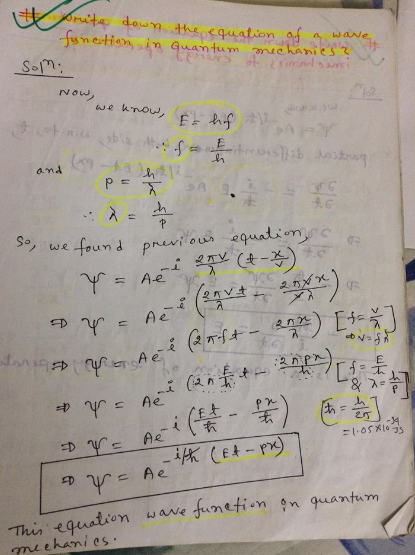 # Write down the equation of a wave
function in quantum mechanics?
Solⁿ:
Now,
we know, E = hf
∴ f = E/h
and p = h/λ
∴ λ = h/p
So, we found previous equation,
Ψ = Ae^{-i 2πv/λ (t - x/v)}
⇒ Ψ = Ae^{-i (2πvt/λ - 2πvx/vλ)}
⇒ Ψ = Ae^{-i (2πft - 2πx/λ)} [f = v/λ ⇒ v = fλ]
⇒ Ψ = Ae^{-i (2π E/h t - 2πpx/h)} [f = E/h & λ = h/p]
⇒ Ψ = Ae^{-i (Et/ħ - px/ħ)} [ħ = h/2π] = 1.05×10^{-34} JS
⇒ Ψ = Ae^{-i/ħ (Et - px)}
This equation wave function in quantum
mechanics.